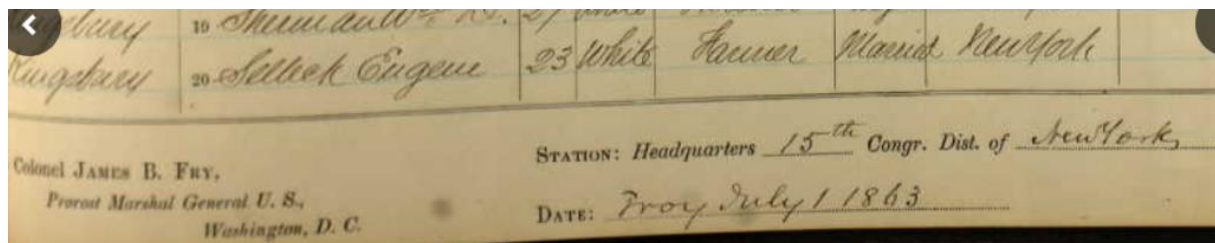 19 Sherman Wm
Kingsbury 20 Selleck Eugene 23 White Farmer Married New York
Colonel JAMES B. FRY,
Provost Marshal General U. S.,
Washington, D. C.
STATION: Headquarters 15th Congr. Dist. of New York,
DATE: Troy July 1 1863